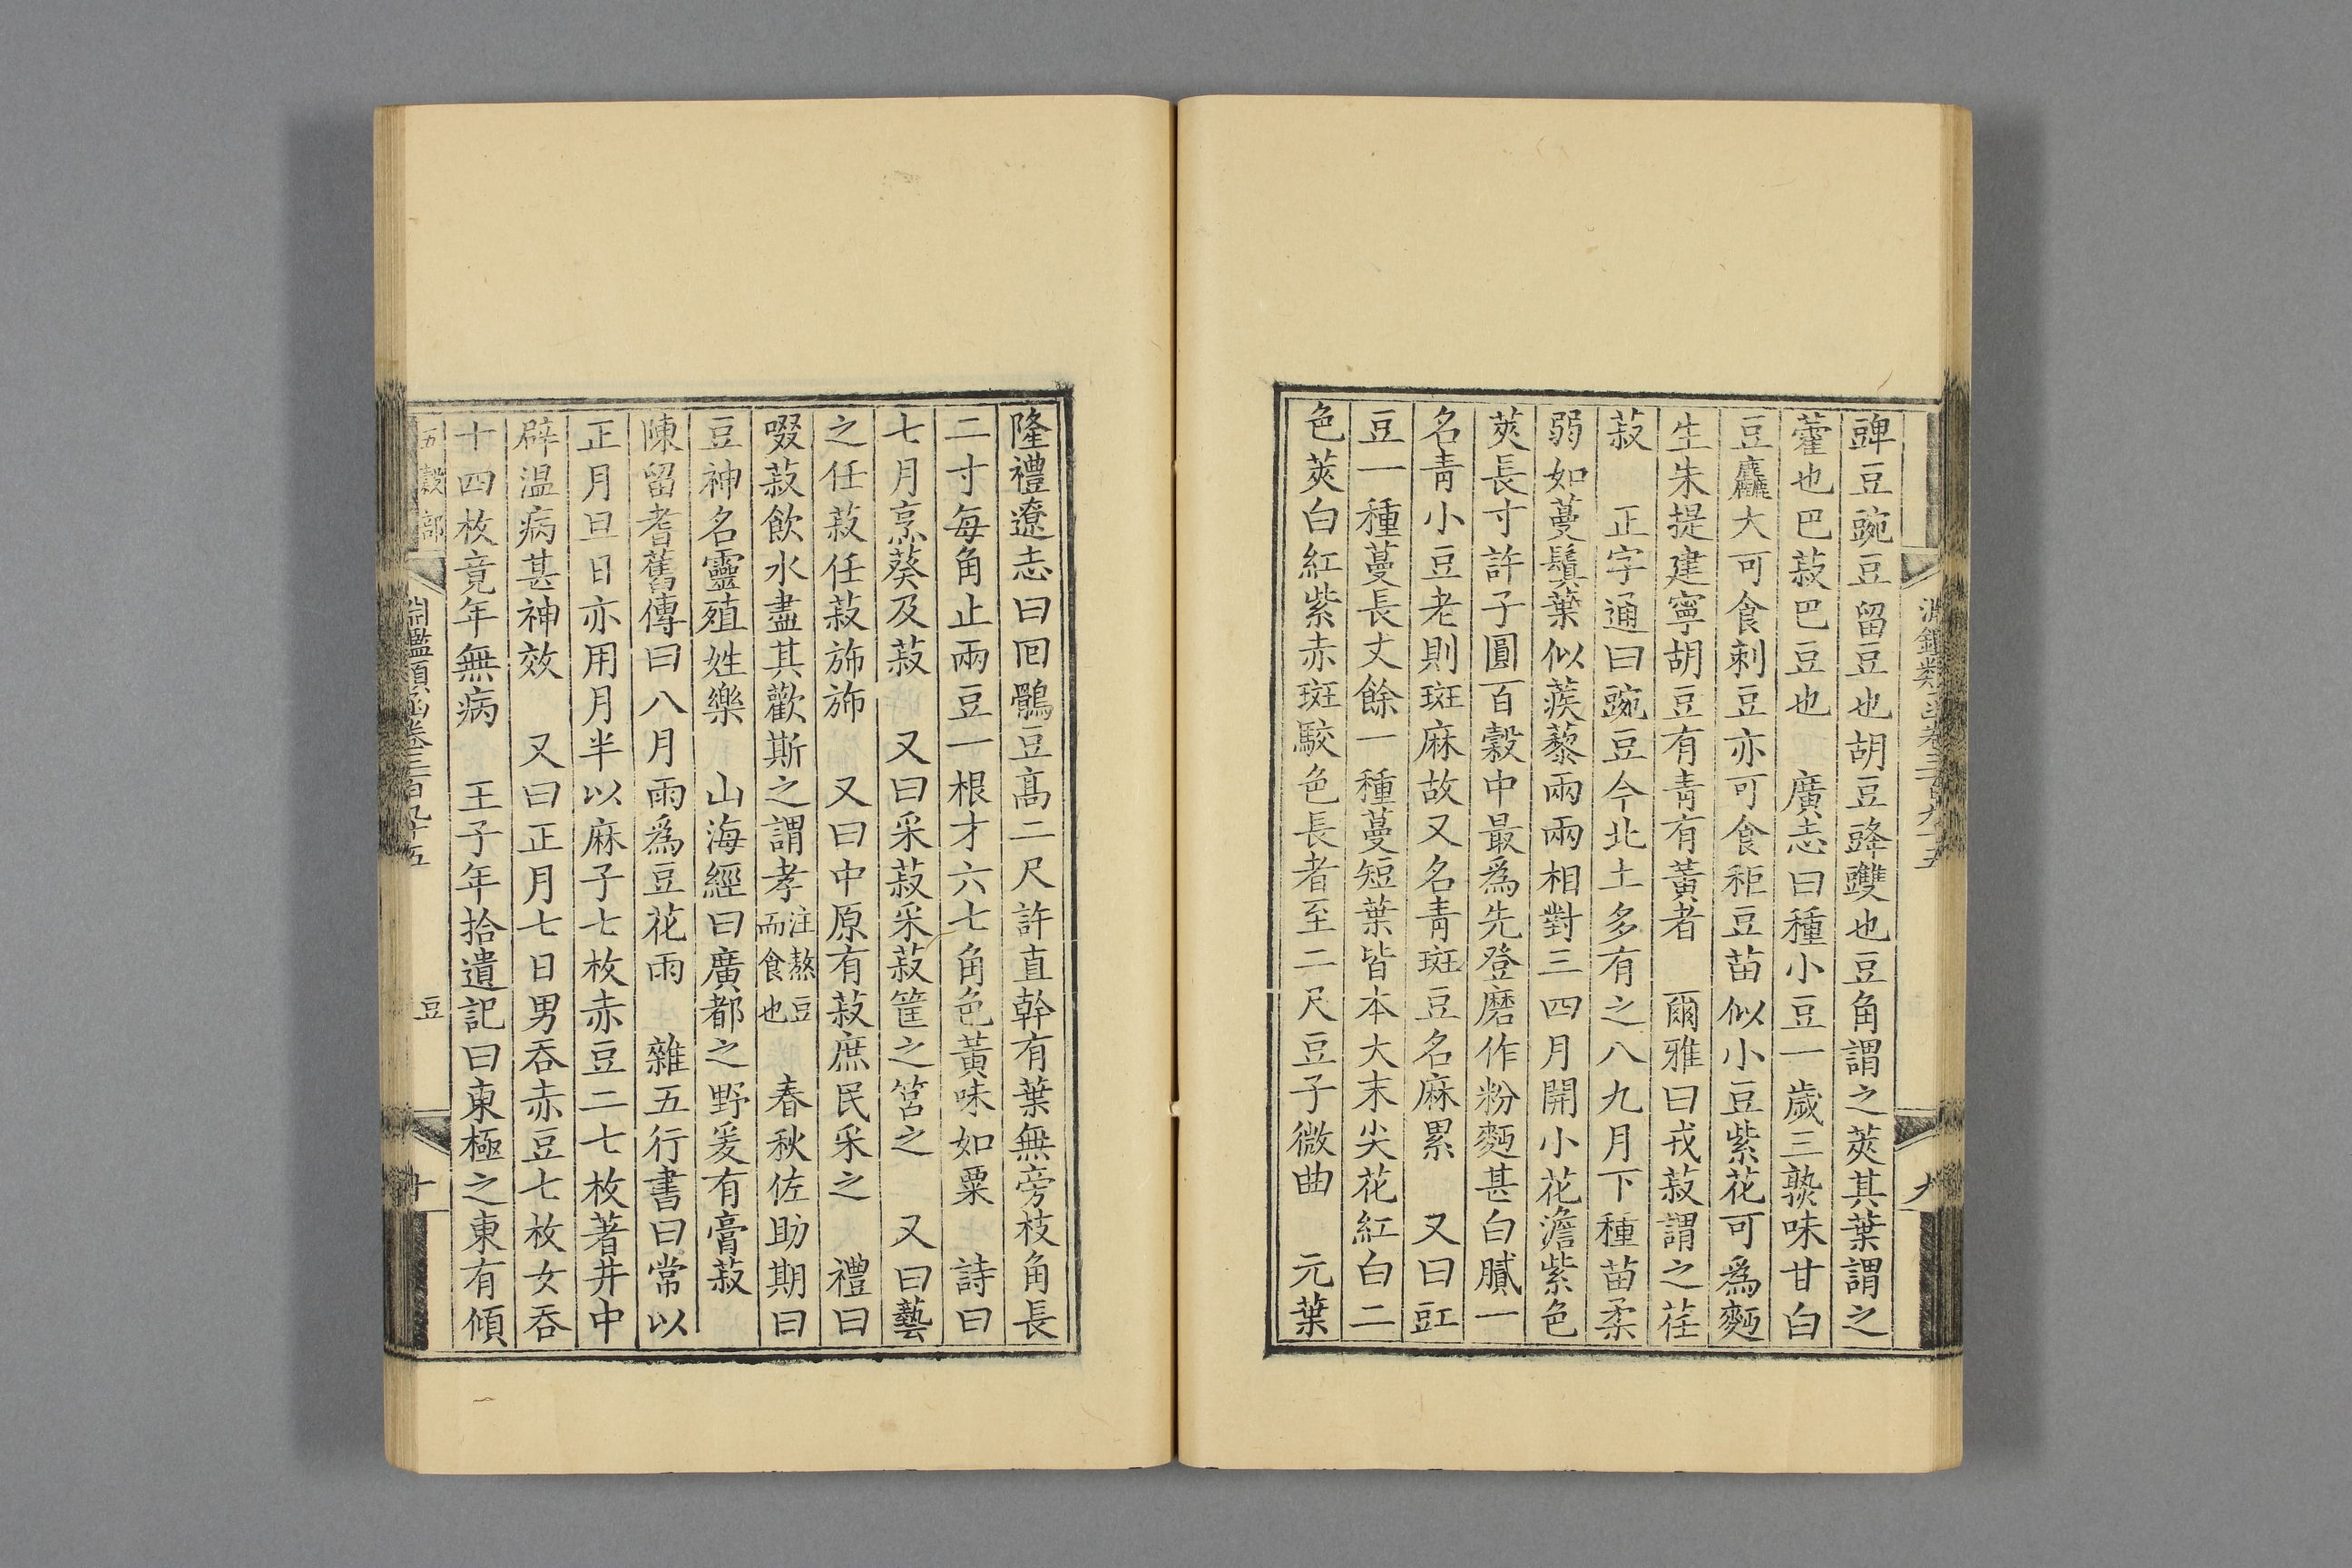 豍豆豌豆留豆也胡豆䜶䝄也豆角謂之莢其葉謂之
藿也巴菽巴豆也　廣志曰種小豆一歲三熟味甘白
豆麤大可食刺豆亦可食秬豆苗似小豆紫花可爲麪
生朱提建寧胡豆有青有黃者　爾雅曰戎菽謂之荏
菽　正字通曰豌豆今北土多有之八九月下種苗柔
弱如蔓鬚葉似蒺藜兩兩相對三四月開小花澹紫色
莢長寸許子圓百穀中最爲先登磨作粉麪甚白膩一
名青小豆老則斑麻故又名青斑豆名麻累　又曰豇
豆一種蔓長丈餘一種蔓短葉皆本大末尖花紅白二
色莢白紅紫赤斑駁色長者至二尺豆子微曲　元葉
九
隆禮遼志曰回鶻豆高二尺許直幹有葉無旁枝角長
二寸每角止兩豆一根才六七角色黃味如粟　詩曰
七月烹葵及菽　又曰采菽采菽筐之筥之　又曰藝
之任菽任菽斾斾　又曰中原有菽庶民采之　禮曰
啜菽飲水盡其歡斯之謂孝注熬豆而食也　春秋佐助期曰
豆神名靈殖姓樂　山海經曰廣都之野爰有膏菽
陳留耆舊傳曰八月雨爲豆花雨　雜五行書曰常以
正月旦日亦用月半以麻子七枚赤豆二七枚著井中
辟温病甚神效　又曰正月七日男吞赤豆七枚女吞
十四枚竟年無病　王子年拾遺記曰東極之東有傾
五穀部　淵鑑類函卷三百九十五　豆　十